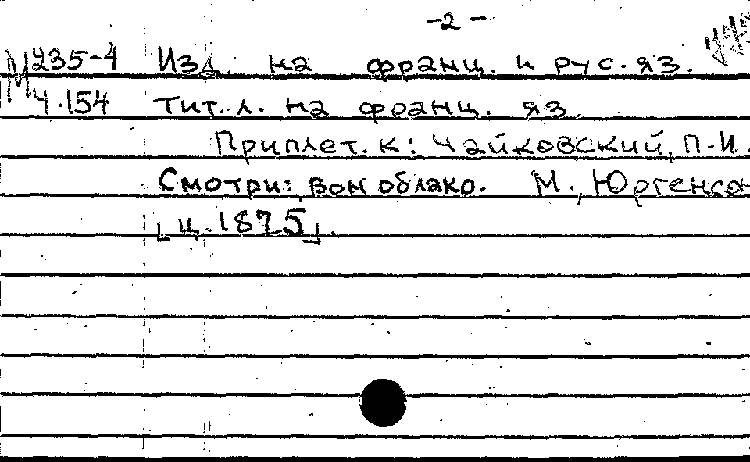 -2-
М 235-4 Изд. на франц. и рус. яз.
Ч.154 Тит. л. на франц. яз.
Приплет. к: Чайковский, П.И.
Смотри: вон облако. М., Юргенсон
[ц.1875].